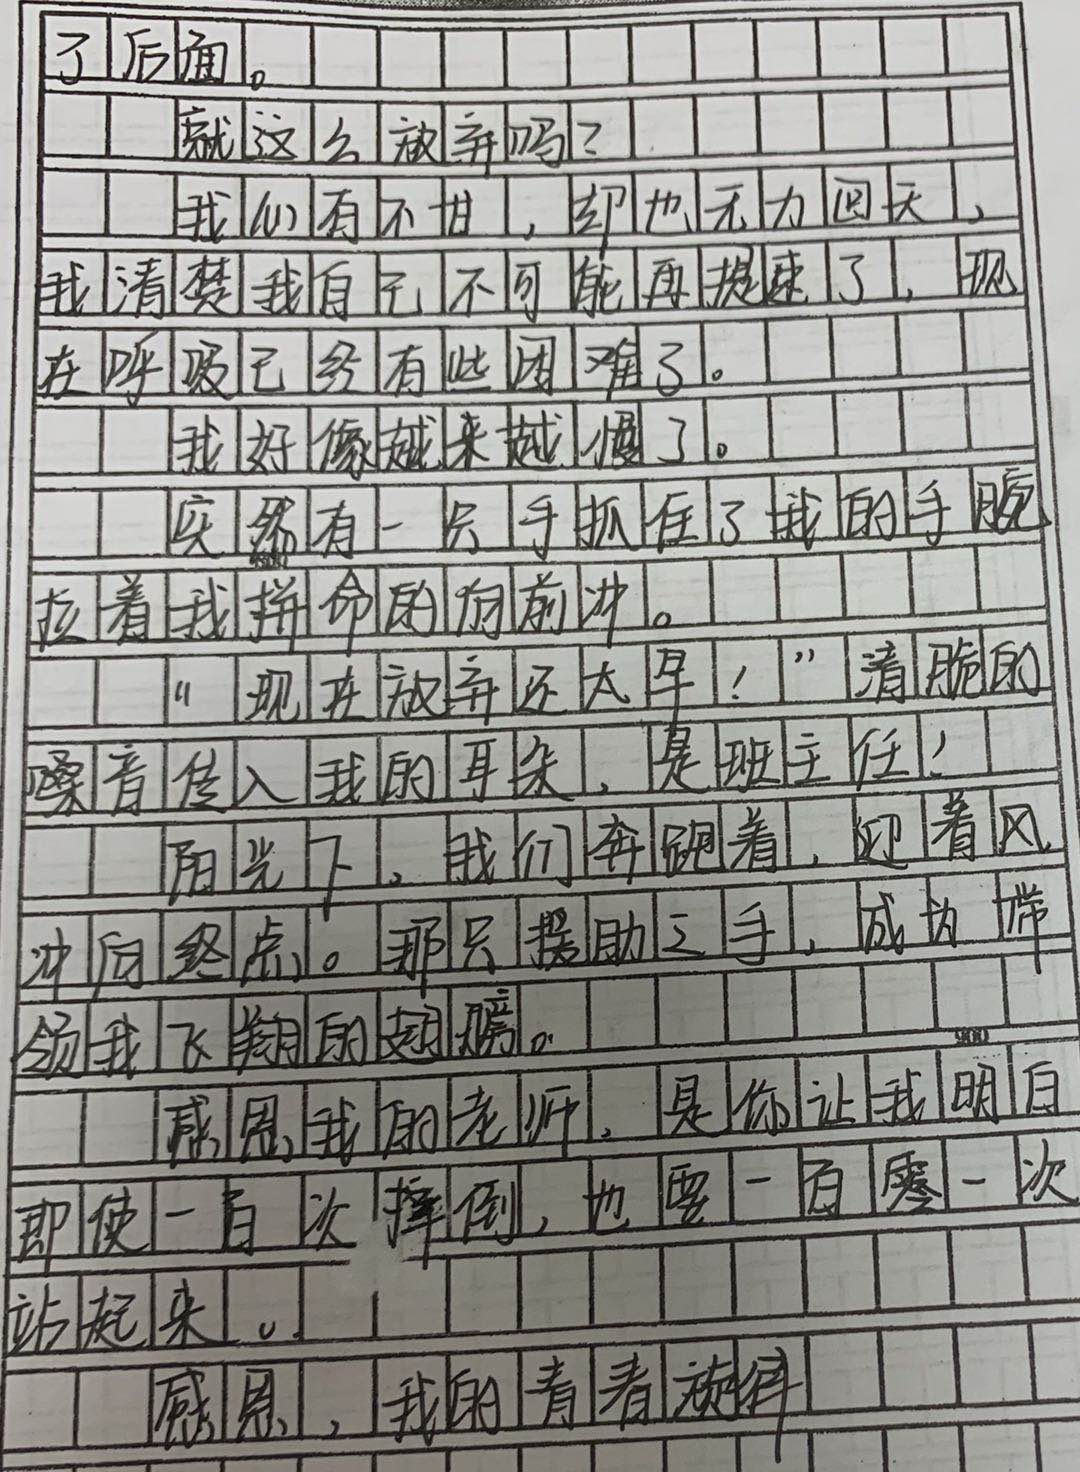 了后面。
就这么放弃吗？
我心有不甘，却也无力回天，
我清楚我自己不可能再提速了，现
在呼吸已经有些困难了。
我好像越来越慢了。
突然有一只手抓住了我的手腕
800
拉着我拼命的向前冲。
“现在放弃还太早！”清脆的
嗓音传入我的耳朵，是班主任！
阳光下，我们奔跑着，迎着风，
冲向终点。那只援助之手，成为带
领我飞翔的翅膀。
900
感恩我的老师，是你让我明白
即使一百次摔倒，也要一百零一次
站起来。
感恩，我的青春旋律